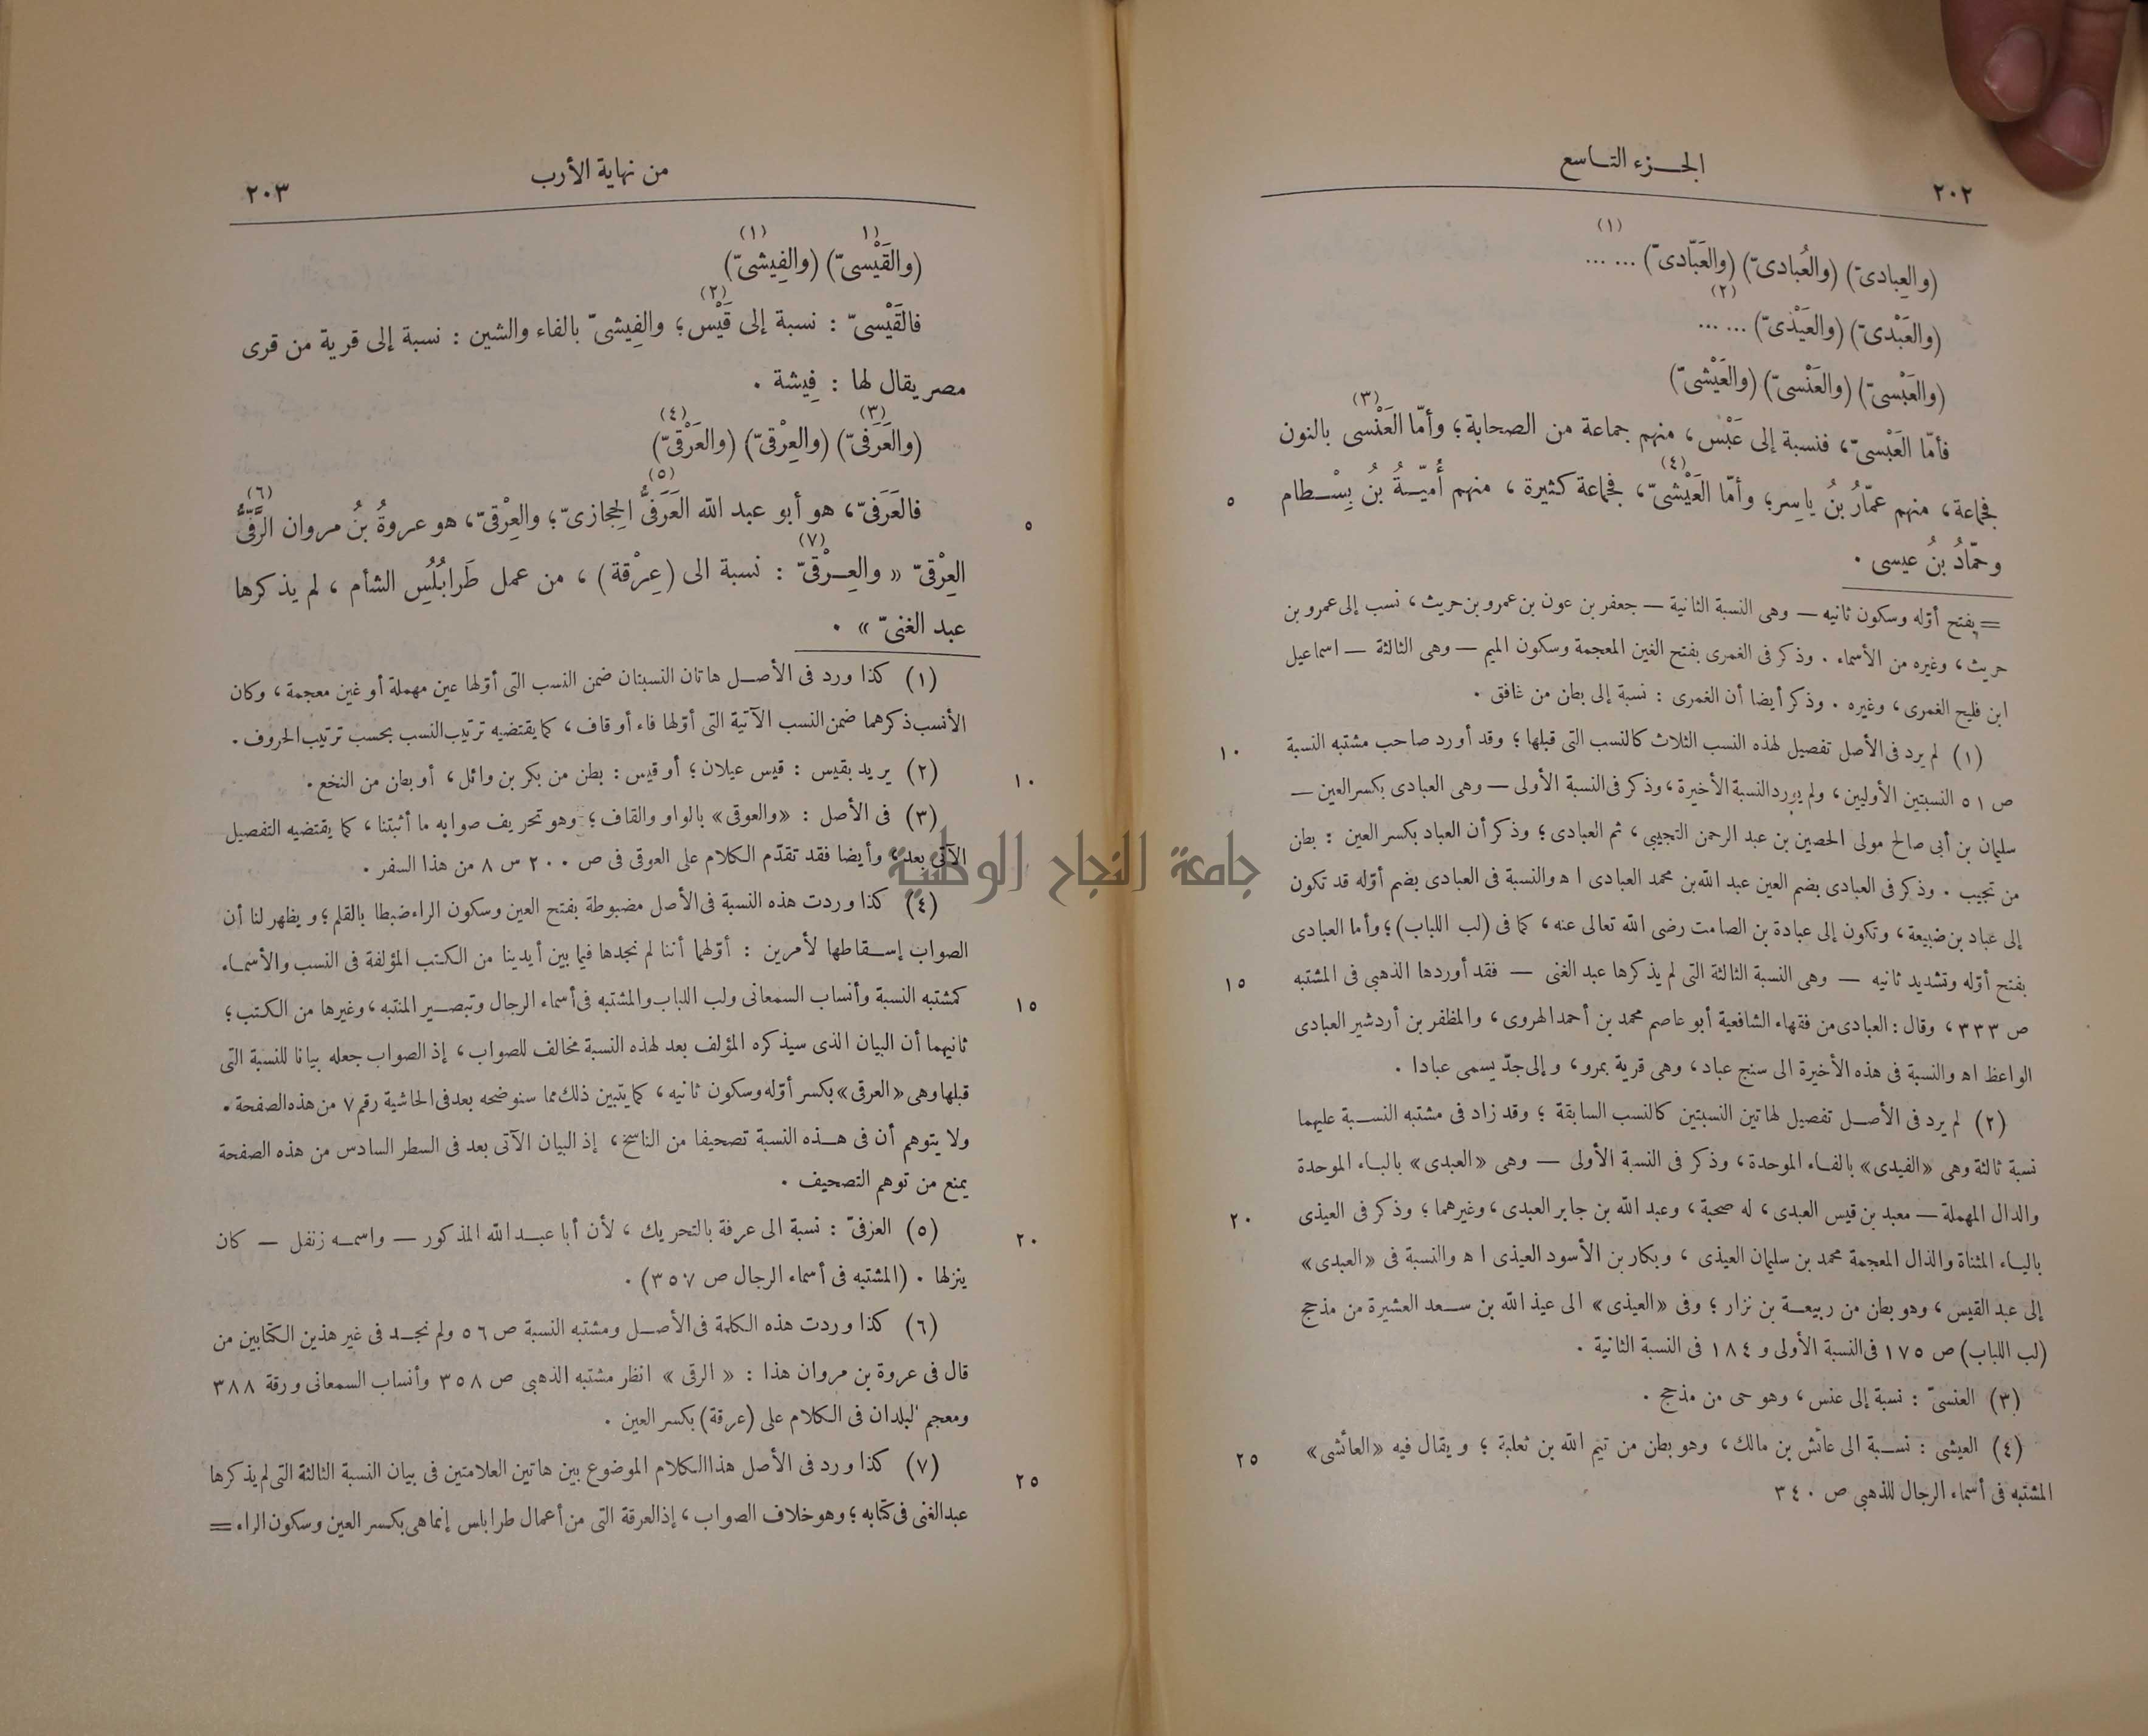 ٢٠٢
الجـزء التـاسع
(والعِبادىّ) (والعُبادىّ) (والعَبّادىّ)(١) ... ...
(والعَبْدىّ) (والعَيْذىّ)(٢) ... ...
(والعَبْسىّ) (والعَنْسىّ) (والعَيْشىّ)
فأمّا العَبْسىّ، فنسبة إلى عَبْس، منهم جماعة من الصحابة؛ وأمّا العَنْسى(٣) بالنون
فجماعة، منهم عمّارُ بنُ ياسِر؛ وأمّا العَيْشىّ(٤)، فجماعة كثيرة، منهم أُميّـةُ بنُ بِسْـطام
٥
وحمّادُ بنُ عيسى .
= بفتح أوّله وسكون ثانيه — وهى النسبة الثانية — جعفر بن عون بن عمرو بن حريث، نسب إلى عمرو بن
حريث، وغيره من الأسماء . وذكر فى الغمرى بفتح الغين المعجمة وسكون الميم — وهى الثالثة — اسماعيل
ابن فليح الغمرى، وغيره . وذكر أيضا أن الغمرى : نسبة إلى بطن من غافق .
(١) لم يرد فى الأصل تفصيل لهذه النسب الثلاث كالنسب التى قبلها؛ وقد أورد صاحب مشتبه النسبة
١٠
ص ٥١ النسبتين الأوليين، ولم يورد النسبة الأخيرة، وذكر فى النسبة الأولى — وهى العبادى بكسر العين —
سليمان بن أبى صالح مولى الحصين بن عبد الرحمن التجيبى، ثم العبادى؛ وذكر أن العباد بكسر العين : بطن
من تجيب . وذكر فى العبادى بضم العين عبد الله بن محمد العبادى اه والنسبة فى العبادى بضم أوّله قد تكون
إلى عباد بن ضبيعة، وتكون إلى عبادة بن الصامت رضى الله تعالى عنه، كما فى (لب اللباب)؛ وأما العبادى
بفتح أوّله وتشديد ثانيه — وهى النسبة الثالثة التى لم يذكرها عبد الغنى — فقد أوردها الذهبى فى المشتبه
١٥
ص ٣٣٣، وقال : العبادى من فقهاء الشافعية أبو عاصم محمد بن أحمد الهروى، والمظفر بن أردشير العبادى
الواعظ اه والنسبة فى هذه الأخيرة الى سنج عباد، وهى قرية بمرو، وإلى جدّ يسمى عبادا .
(٢) لم يرد فى الأصـل تفصيل لهاتين النسبتين كالنسب السابقة ؛ وقد زاد فى مشتبه النسـبة عليهما
نسبة ثالثة وهى «الفيدى» بالفـاء الموحدة، وذكر فى النسبة الأولى — وهى «العبدى» بالبـاء الموحدة
والدال المهملة — معبد بن قيس العبدى، له صحبة، وعبد الله بن جابر العبدى، وغيرهما؛ وذكر فى العيذى
٢٠
باليـاء المثناة والذال المعجمة محمد بن سليمان العيذى ، وبكار بن الأسود العيذى اه والنسبة فى «العبدى»
إلى عبد القيس، وهو بطن من ربيعـة بن نزار ؛ وفى «العيذى» الى عيذ الله بن سـعد العشيرة من مذحج
(لب اللباب) ص ١٧٥ فى النسبة الأولى و ١٨٤ فى النسبة الثانية .
(٣) العنسىّ : نسبة إلى عنس، وهو حى من مذحج .
(٤) العيشى : نسـبة الى عائش بن مالك، وهو بطن من تيم الله بن ثعلبة ؛ ويقال فيه «العائشى»
٢٥
المشتبه فى أسماء الرجال للذهبى ص ٣٤٠
من نهاية الأرب
٢٠٣
(والقَيْسىّ)(١) (والفِيشىّ)(١)
فالقَيْسىّ : نسبة إلى قَيْس(٢)؛ والفِيشىّ بالفاء والشين : نسبة إلى قرية من قرى
مصر يقال لها : فِيشة .
(والعَرَفىّ)(٣) (والعِرْقىّ) (والعَرْقىّ)(٤)
فالعَرَفىّ، هو أبو عبد الله العَرَفىُّ(٥) الحِجازىّ؛ والعِرْقىّ، هو عروةُ بنُ مروان الرَّقّىُّ(٦)
٥
العِرْقىّ «والعِـرْقىّ(٧) : نسبة الى (عِرْقة) ، من عمل طَرابُلُسِ الشأم ، لم يذكرها
عبد الغنىّ» .
(١) كذا ورد فى الأصـل هاتان النسبتان ضمن النسب التى أوّلها عين مهملة أو غين معجمة، وكان
الأنسب ذكرهما ضمن النسب الآتية التى أوّلها فاء أو قاف، كما يقتضيه ترتيب النسب بحسب ترتيب الحروف .
(٢) يريد بقيس : قيس عيلان؛ أو قيس : بطن من بكر بن وائل، أو بطن من النخع .
١٠
(٣) فى الأصل : «والعوقى» بالواو والقاف؛ وهو تحريف صوابه ما أثبتنا، كما يقتضيه التفصيل
الآتى بعد؛ وأيضا فقد تقدّم الكلام على العوقى فى ص ٢٠٠ س ٨ من هذا السفر .
جامعة النجاح الوطنية
(٤) كذا وردت هذه النسبة فى الأصل مضبوطة بفتح العين وسكون الراء ضبطا بالقلم؛ ويظهر لنا أن
الصواب إسـقاطها لأمرين : أوّلهما أننا لم نجدها فيما بين أيدينا من الكتب المؤلفة فى النسب والأسمـاء
كمشتبه النسبة وأنساب السمعانى ولب اللباب والمشتبه فى أسماء الرجال وتبصـير المنتبه، وغيرها من الكتب؛
١٥
ثانيهما أن البيان الذى سيذكره المؤلف بعد لهذه النسبة مخالف للصواب، إذ الصواب جعله بيانا للنسبة التى
قبلها وهى «العرقى» بكسر أوّله وسكون ثانيه، كما يتبين ذلك مما سنوضحه بعد فى الحاشية رقم ٧ من هذه الصفحة .
ولا يتوهم أن فى هـذه النسبة تصحيفا من الناسخ، إذ البيان الآتى بعد فى السطر السادس من هذه الصفحة
يمنع من توهم التصحيف .
(٥) العرفىّ : نسبة الى عرفة بالتحريك ، لأن أبا عبـد الله المذكور — واسمـه زنفل — كان
٢٠
ينزلها . (المشتبه فى أسماء الرجال ص ٣٥٧) .
(٦) كذا وردت هذه الكلمة فى الأصـل ومشتبه النسبة ص ٥٦ ولم نجـد فى غير هذين الكتابين من
قال فى عروة بن مروان هذا : «الرقى» انظر مشتبه الذهبى ص ٣٥٨ وأنساب السمعانى ورقة ٣٨٨
ومعجم البلدان فى الكلام على (عرقة) بكسر العين .
(٧) كذا ورد فى الأصل هذا الكلام الموضوع بين هاتين العلامتين فى بيان النسبة الثالثة التى لم يذكرها
٢٥
عبد الغنى فى كتابه؛ وهو خلاف الصواب، إذ العرقة التى من أعمال طرابلس إنما هى بكسر العين وسكون الراء =